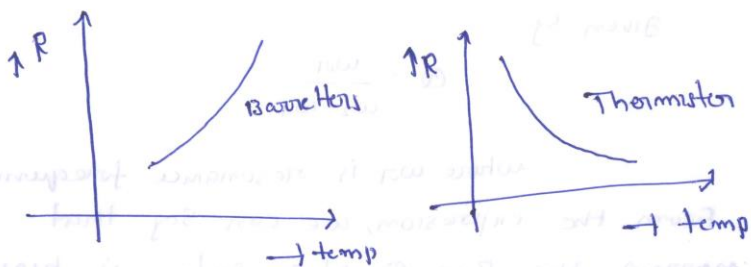 ↑ R
Barretters
→ temp
↑R
Thermister
→ temp